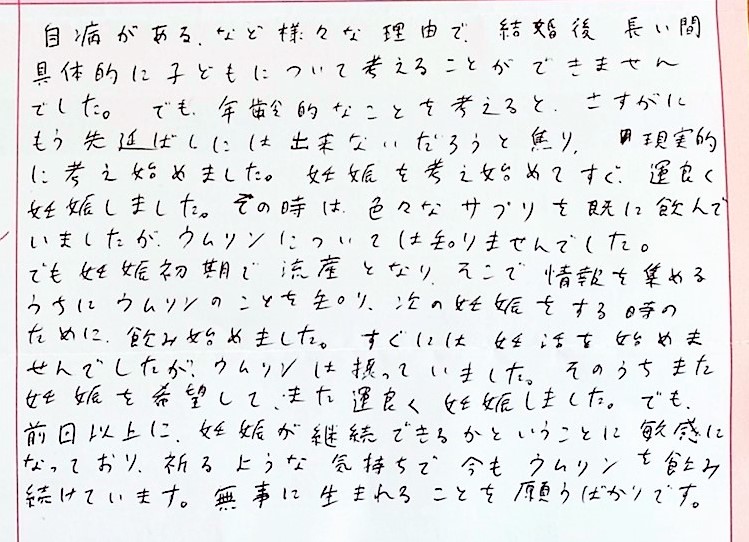 自病がある、など様々な理由で、結婚後 長い間
具体的に子どもについて考えることができません
でした。でも、年齢的なことを考えると、さすがに
もう先延ばしには出来ないだろうと焦り、現実的
に考え始めました。妊娠を考え始めてすぐ、運良く
妊娠しました。その時は、色々なサプリを既に飲んで
いましたが、ウムリンについては知りませんでした。
でも妊娠初期で流産となり、そこで情報を集める
うちにウムリンのことを知り、次の妊娠をする時の
ために、飲み始めました。すぐには妊活を始めま
せんでしたが、ウムリンは摂っていました。そのうちまた
妊娠を希望して、また運良く妊娠しました。でも、
前回以上に、妊娠が継続できるかということに敏感に
なっており、祈るような気持ちで今もウムリンを飲み
続けています。無事に生まれることを願うばかりです。